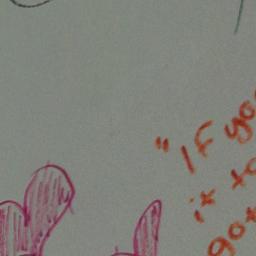 "If yo
it to
got